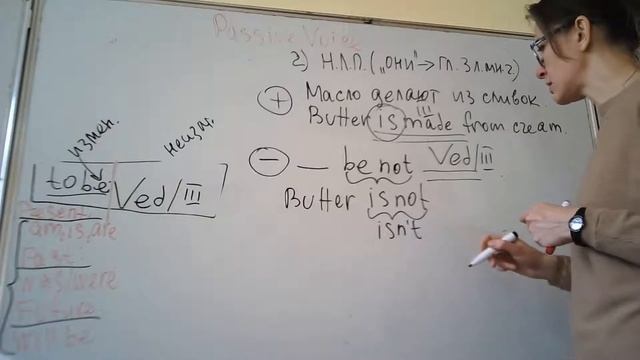 Passive Voice
2) Н.Л.П. („они"→ Гл. 3 л. мн. ч)
+ Масло делают из сливок.
III
Butter is made from cream.
измен.
неизм.
to be Ved/III
− — be not Ved/III
Butter is not
isn't
Present
am, is, are
Past
was/were
Future
will be